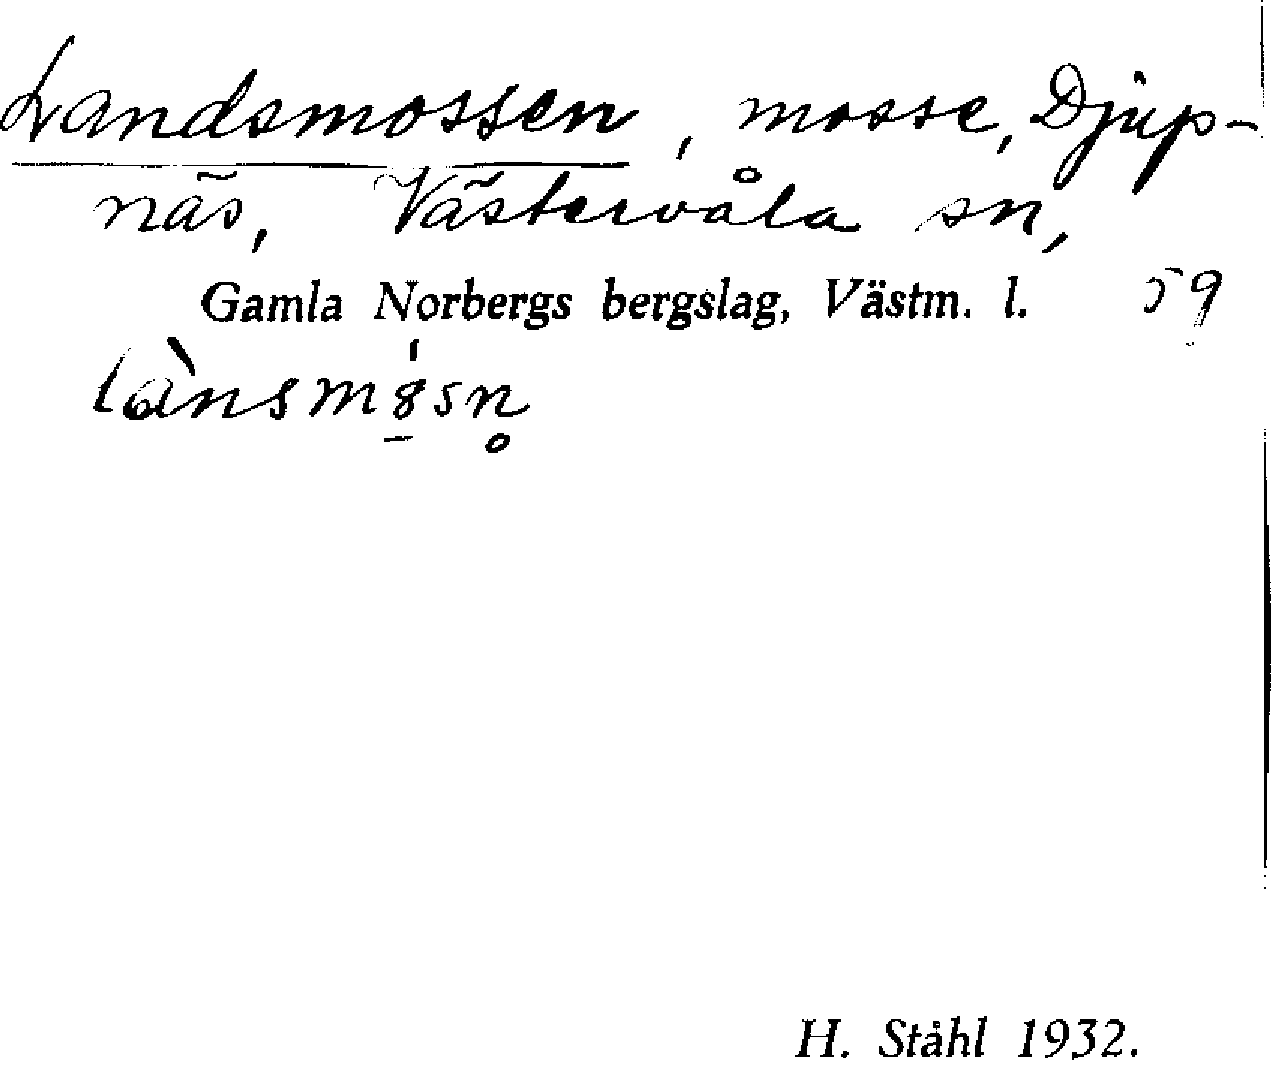 Landsmossen, mosse, Djup-
näs, Västervåla sn,
Gamla Norbergs bergslag, Västm. l. 59
H. Ståhl 1932.